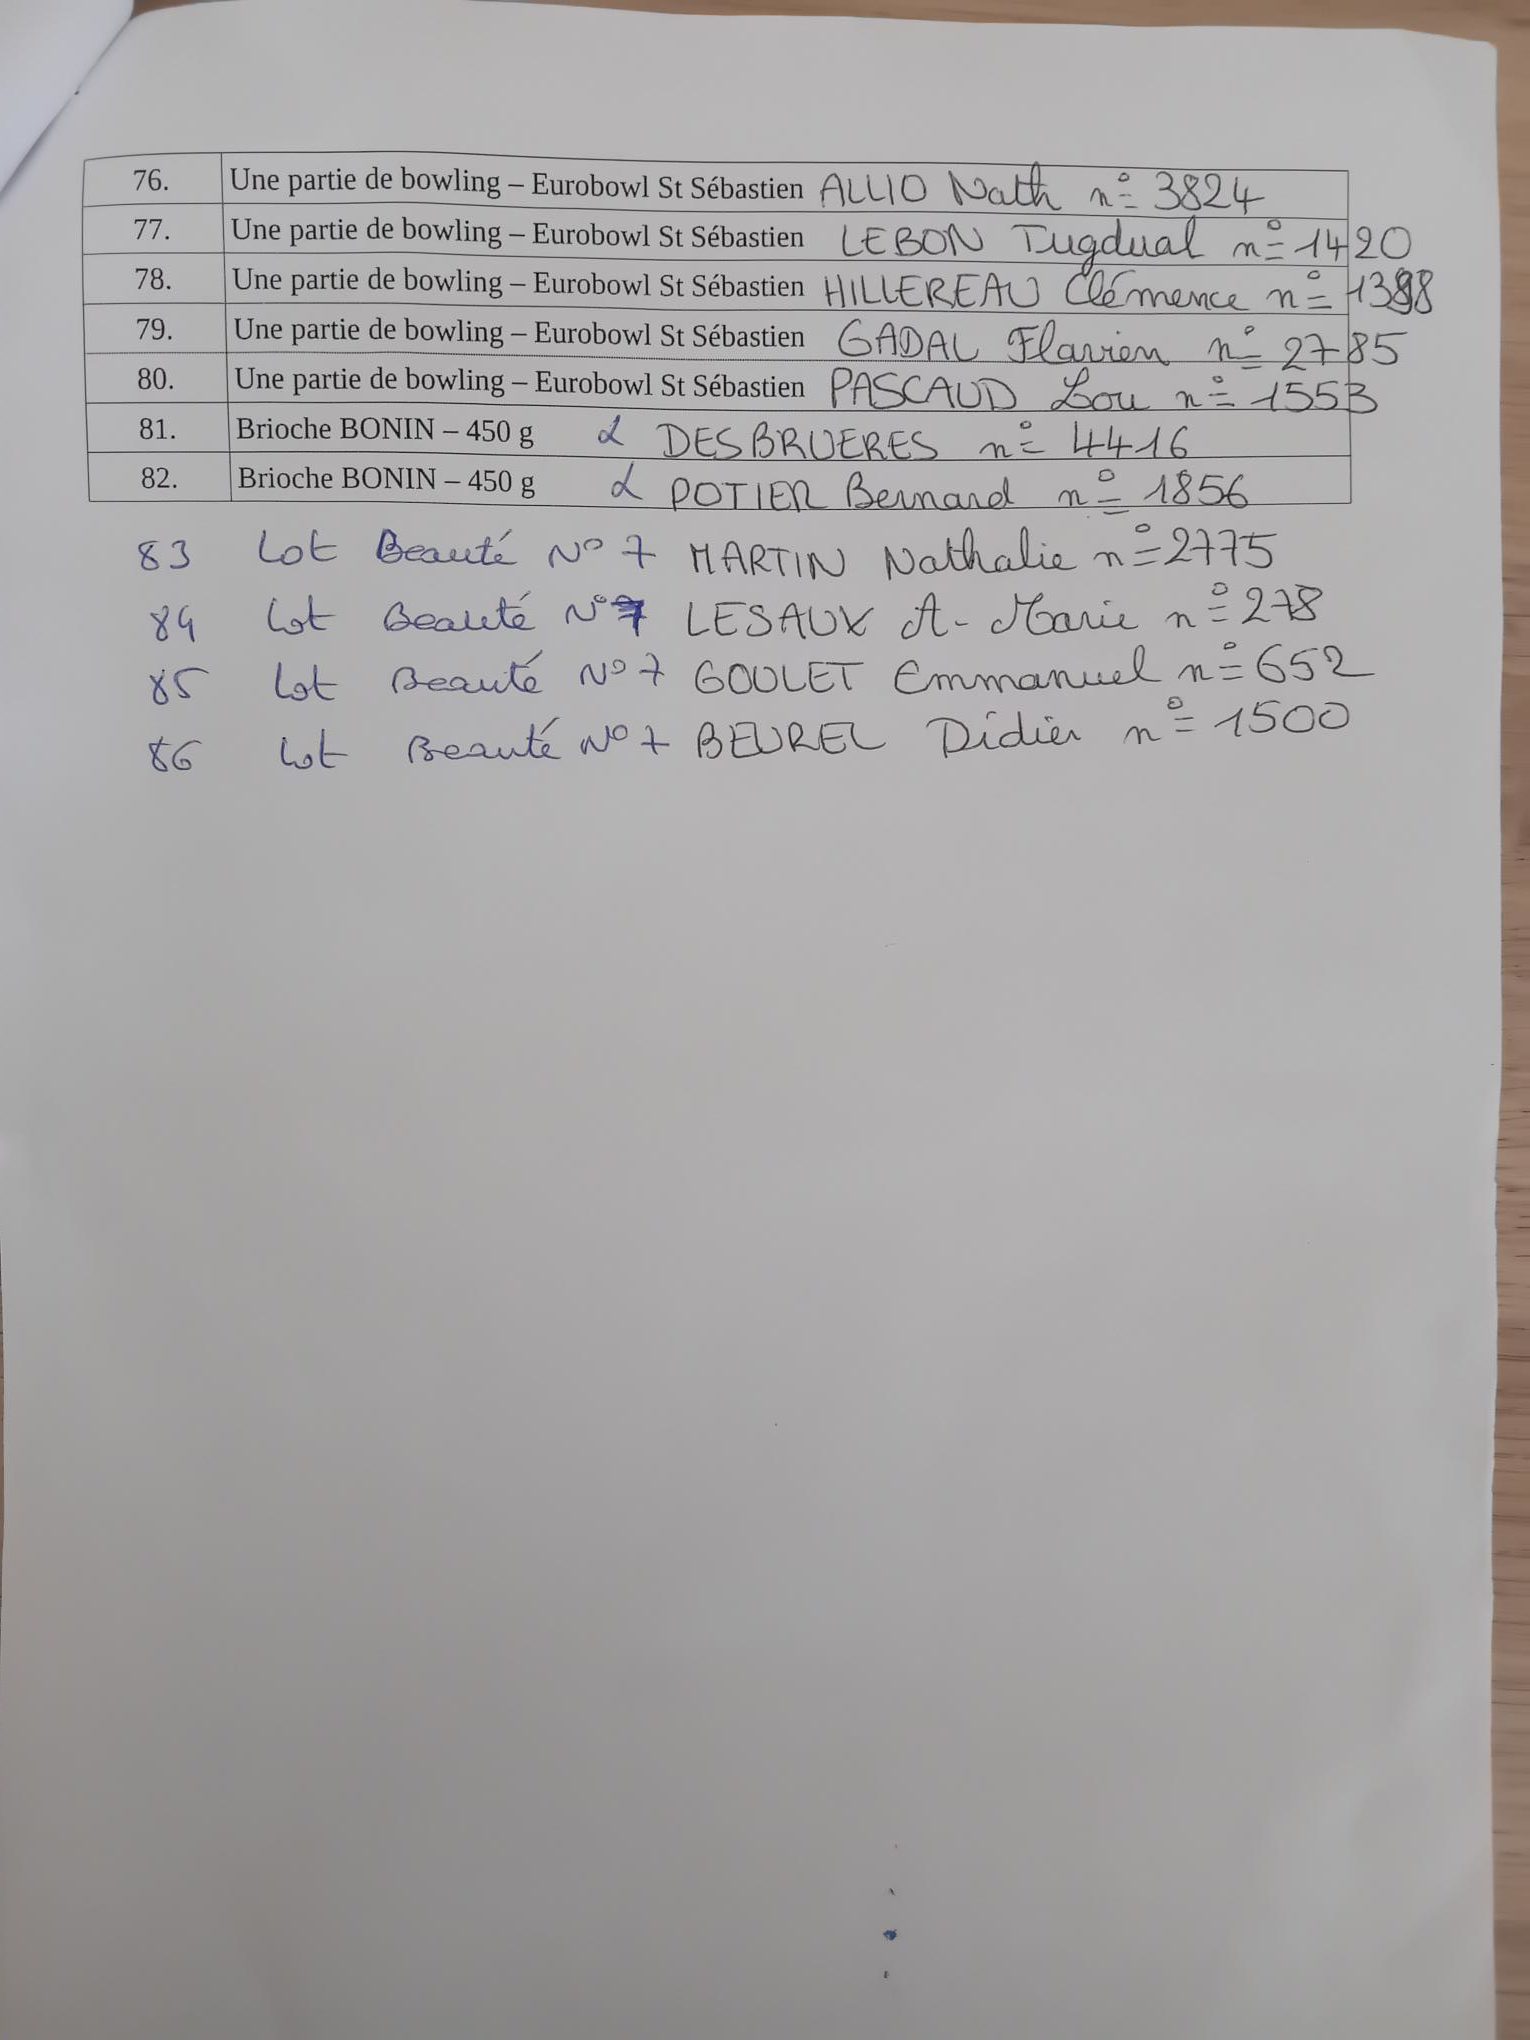 76. Une partie de bowling – Eurobowl St Sébastien ALLIO Nath n° 3824
77. Une partie de bowling – Eurobowl St Sébastien LEBON Tugdual n° 1420
78. Une partie de bowling – Eurobowl St Sébastien HILLEREAU Clémence n°
79. Une partie de bowling – Eurobowl St Sébastien GADAL Flavien n° 2785
80. Une partie de bowling – Eurobowl St Sébastien PASCAUD Lou n° 1553
81. Brioche BONIN – 450 g DESBRUERES n° 4416
82. Brioche BONIN – 450 g POTIER Bernard n° 1856
83 Lot Beauté N° 7 MARTIN Nathalie n° 2775
84 Lot Beauté N° 7 LESAUX A-Marie n° 278
85 Lot Beauté N° 7 GOULET Emmanuel n° 652
86 Lot Beauté N° 7 BEUREL Didier n° 1500